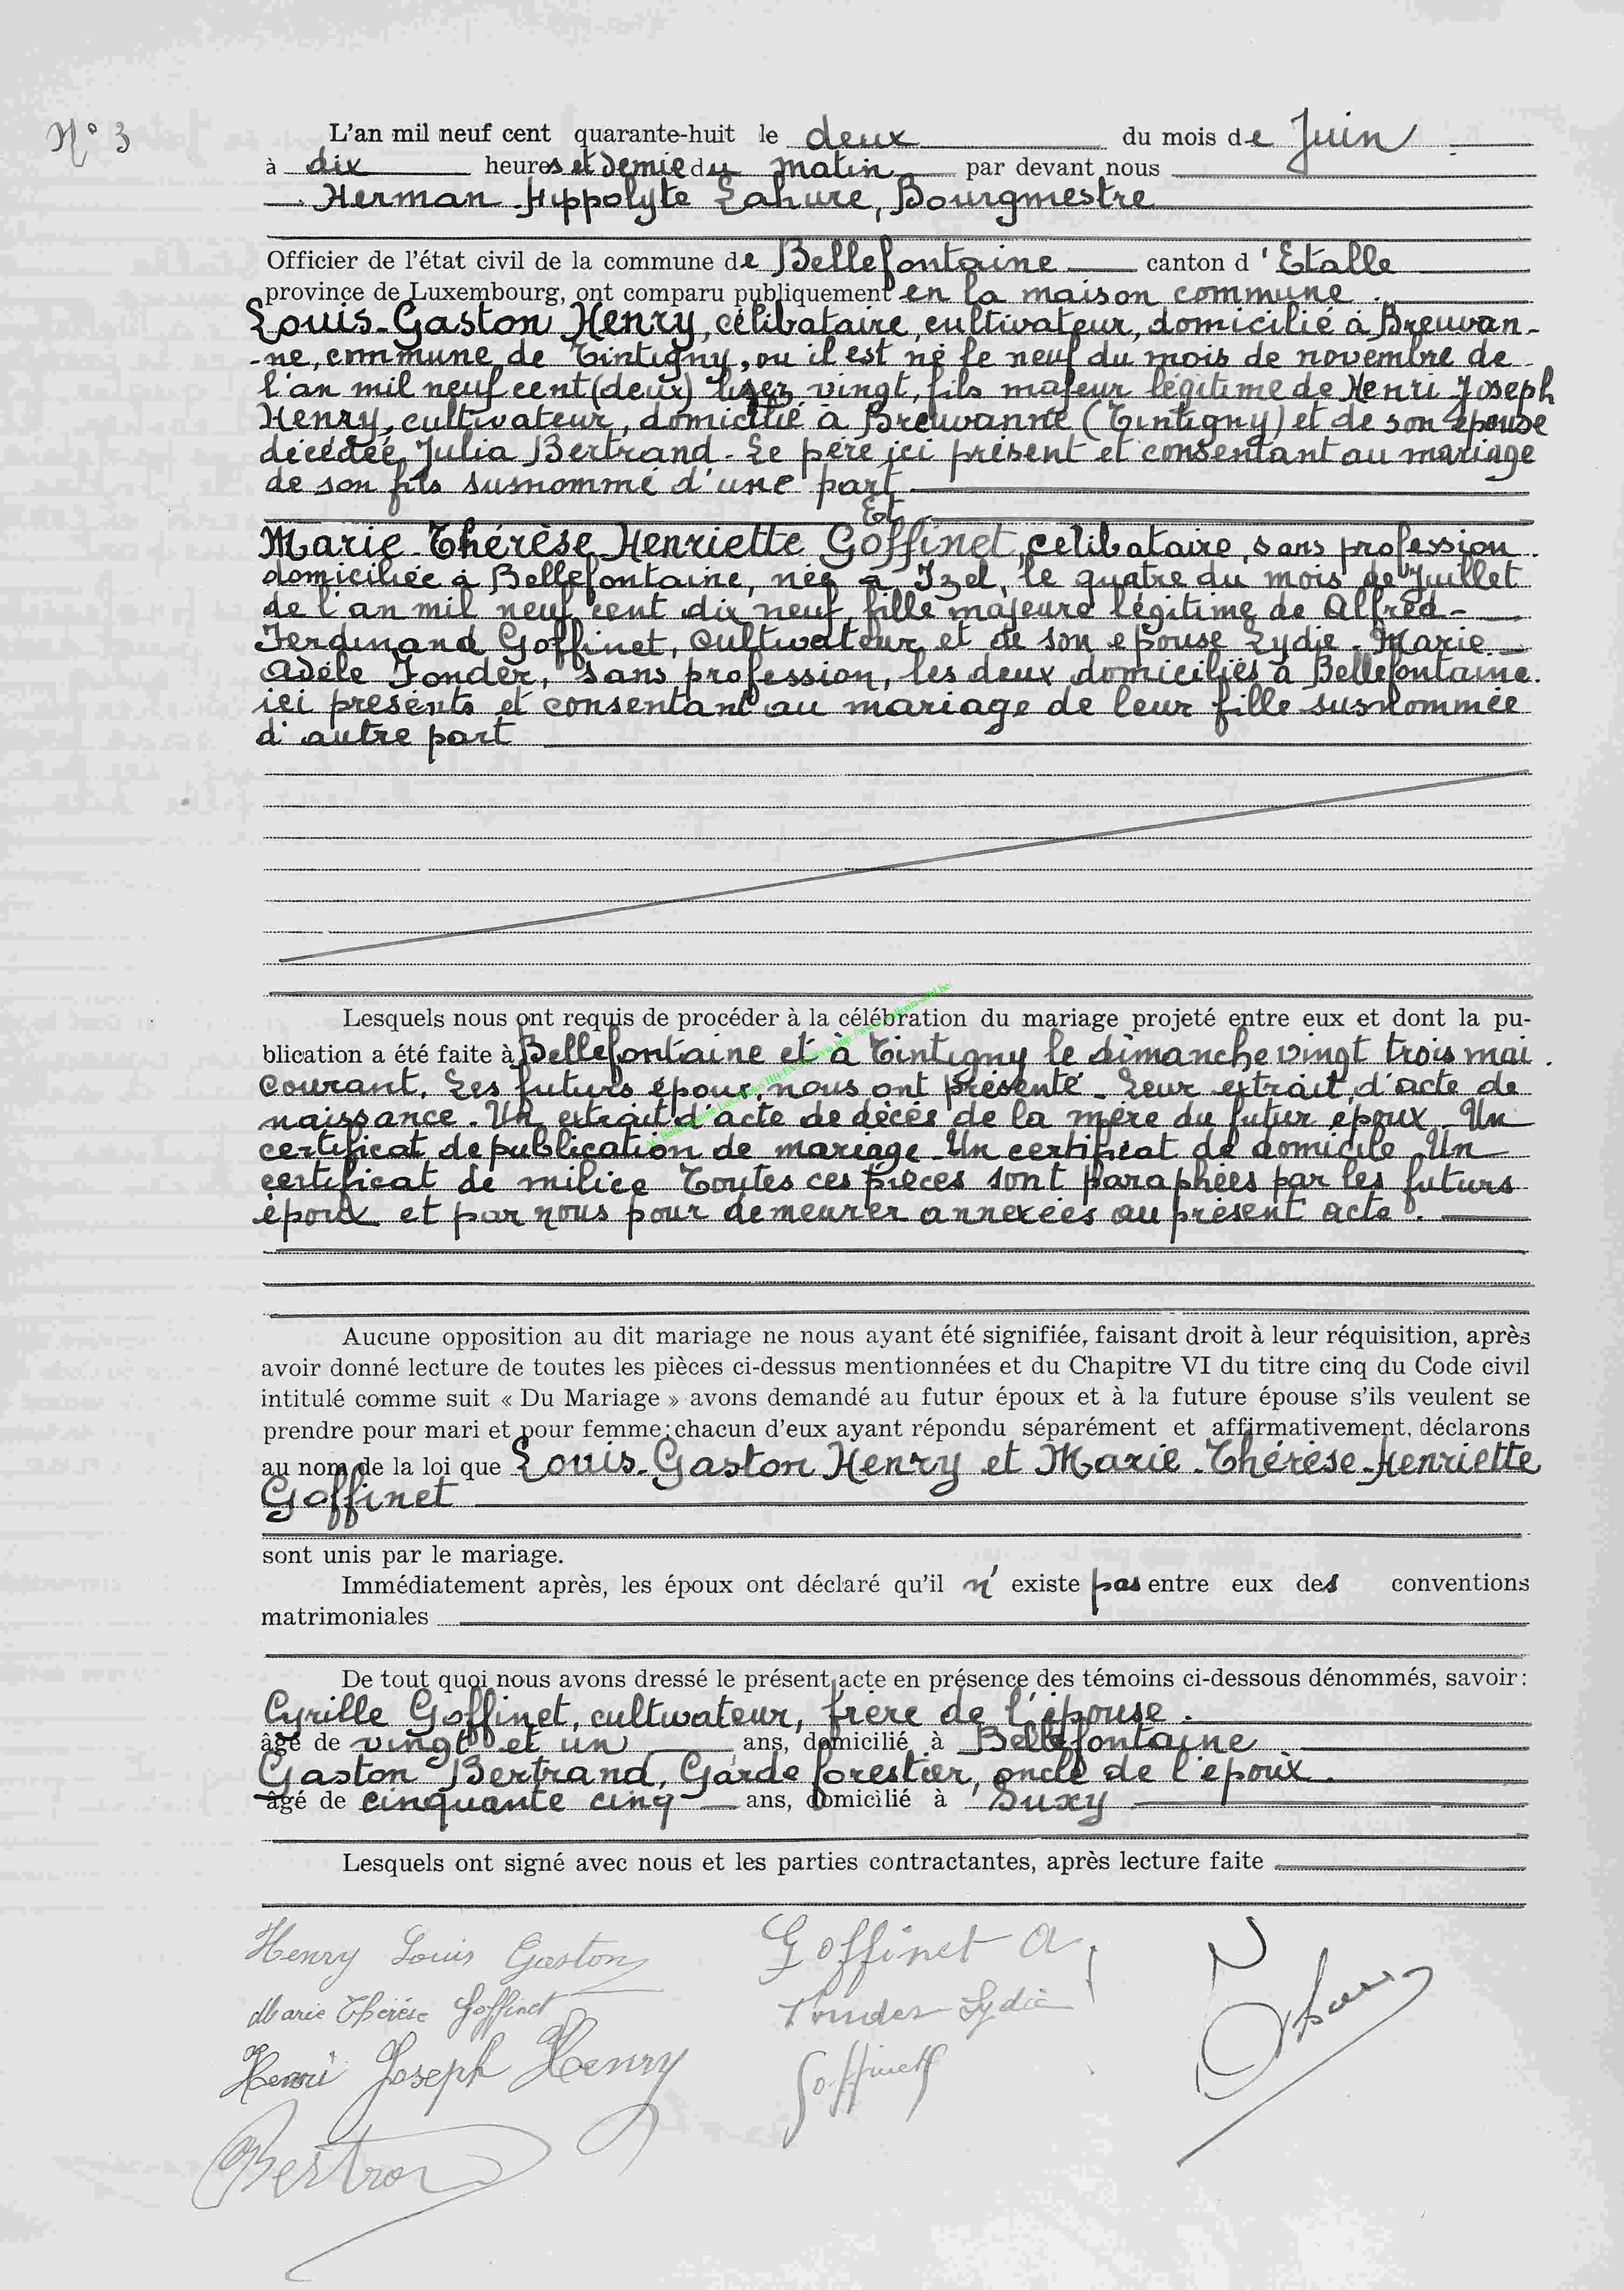 N° 3
L'an mil neuf cent quarante-huit le deux du mois de Juin
à dix heures et demie du matin par devant nous
Herman Hippolyte Lahure, Bourgmestre
Officier de l'état civil de la commune de Bellefontaine canton d'Etalle
province de Luxembourg, ont comparu publiquement en la maison commune.
Louis-Gaston Henry, célibataire, cultivateur, domicilié à Breuvan-
-ne, commune de Tintigny, ou il est né le neuf du mois de novembre de
l'an mil neuf cent (deux) lisez vingt, fils majeur légitime de Henri Joseph
Henry, cultivateur, domicilié à Breuvanne (Tintigny) et de son épouse
décédée, Julia Bertrand - Le père ici présent et consentant au mariage
de son fils susnommé d'une part
Et
Marie-Thérèse Henriette Goffinet, célibataire, sans profession.
domiciliée à Bellefontaine, née à Izel, le quatre du mois de Juillet
de l'an mil neuf cent dix neuf, fille majeure légitime de Alfred-
Ferdinand Goffinet, cultivateur et de son épouse Lydie-Marie-
Adèle Fonder, sans profession, les deux domiciliés à Bellefontaine.
ici présents et consentant au mariage de leur fille susnommée
d'autre part
Lesquels nous ont requis de procéder à la célébration du mariage projeté entre eux et dont la pu-
blication a été faite à Bellefontaine et à Tintigny le dimanche vingt trois mai.
courant. Les futurs époux, nous ont présenté - Leur extrait d'acte de
naissance - Un extrait d'acte de décès de la mère du futur époux - Un
certificat de publication de mariage - Un certificat de domicile - Un
certificat de milice Toutes ces pièces sont paraphées par les futurs
époux et par nous pour demeurer annexées au présent acte.
Aucune opposition au dit mariage ne nous ayant été signifiée, faisant droit à leur réquisition, après
avoir donné lecture de toutes les pièces ci-dessus mentionnées et du Chapitre VI du titre cinq du Code civil
intitulé comme suit « Du Mariage » avons demandé au futur époux et à la future épouse s'ils veulent se
prendre pour mari et pour femme; chacun d'eux ayant répondu séparément et affirmativement, déclarons
au nom de la loi que Louis-Gaston Henry et Marie-Thérèse-Henriette
Goffinet
sont unis par le mariage.
Immédiatement après, les époux ont déclaré qu'il n'existe pas entre eux des conventions
matrimoniales
De tout quoi nous avons dressé le présent acte en présence des témoins ci-dessous dénommés, savoir:
Cyrille Goffinet, cultivateur, frère de l'épouse.
âgé de vingt et un ans, domicilié à Bellefontaine
Gaston Bertrand, Garde forestier, oncle de l'époux.
âgé de cinquante cinq ans, domicilié à Suxy
Lesquels ont signé avec nous et les parties contractantes, après lecture faite
Henry Louis Gaston
Goffinet A
Marie Thérèse Goffinet
Fonder Lydie
Henri Joseph Henry
Goffinet
Bertrand